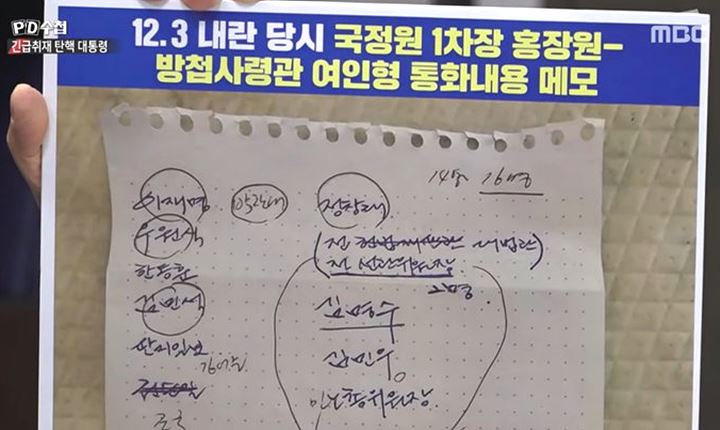 PD수첩
긴급취재 탄핵 대통령
MBC
12.3 내란 당시 국정원 1차장 홍장원-
방첩사령관 여인형 통화내용 메모
14명 16명
이재명
정청래
우원식
(전 대법관)
전 선관위원장
한동훈
김민석
김명수
김민웅
민노총위원장
조국